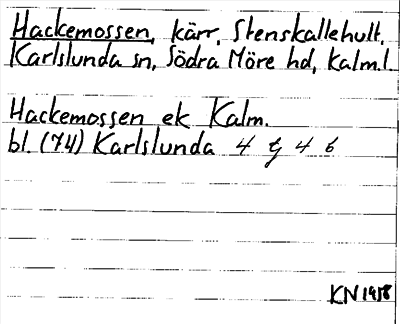 Hackemossen, kärr, Stenskallehult.
Karlslunda sn, Södra Möre hd, Kalm.l.
Hackemossen ek Kalm.
bl. (74) Karlslunda 4 g 4 6
KN 1958